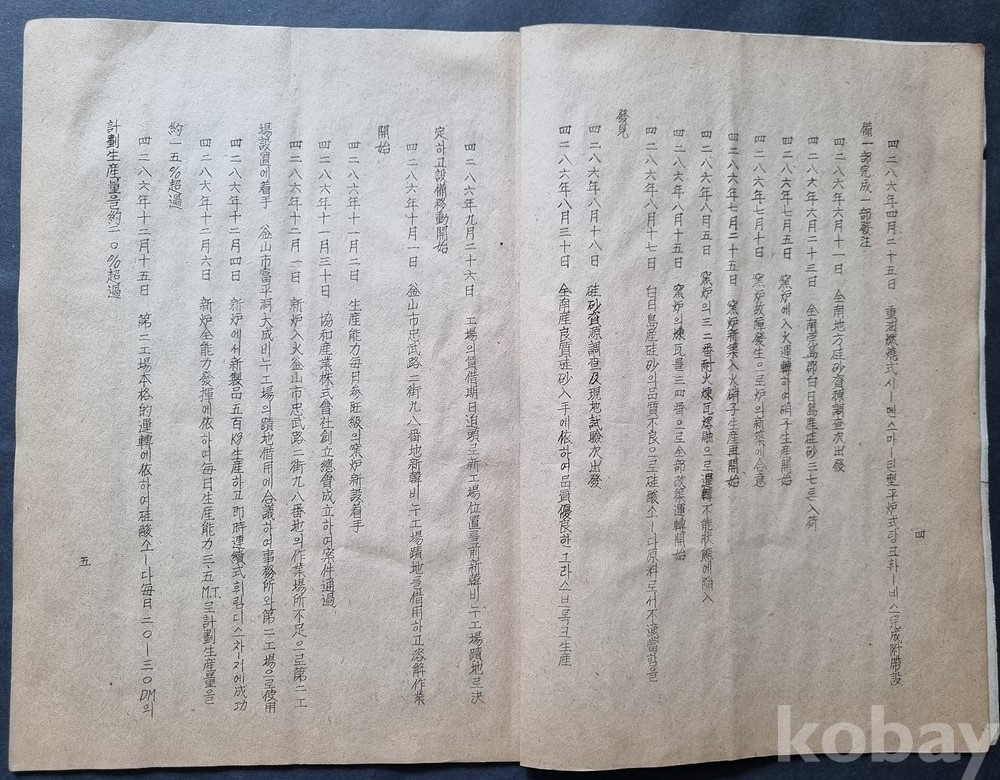 四二八六年四月二十五日 重油燃燒式시ー멘스마ー틴型平炉式탕크화ー비스完成附帶設
備一部完成一部發注
四二八六年六月十一日 全南地方硅砂資源調査次出發
四二八六年六月二十三日 全南務安郡白日島産硅砂三七톤入荷
四二八六年七月五日 窯炉에入火運轉하여硝子生産開始
四二八六年七月十日 窯炉故障發生으로炉의新築에合意
四二八六年七月二十五日 窯炉新築入火硝子生産再開始
四二八六年八月五日 窯炉의三二番耐火煉瓦熔融으로運轉不能狀態에陷入
四二八六年八月十五日 窯炉의煉瓦를三四番으로全部改築運轉開始
四二八六年八月十七日 白日島産硅砂의品質不良으로硅酸소ー다原料로서不適當함을
發見
四二八六年八月十八日 硅砂資源調査及現地試驗次出發
四二八六年八月三十日 全南産良質硅砂入手에依하여品質優良한그라스브록크生産
四
四二八六年九月二十六日 工場의賃借期日迫頭로新工場位置를前新韓비누工場蹟地로決
定하고設備移動開始
四二八六年十月一日 釜山市忠武路二街九八番地新韓비누工場蹟地를借用하고溶解作業
開始
四二八六年十一月二日 生産能力每日參旺級의窯炉新設着手
四二八六年十一月三十日 協和産業株式會社創立總會成立하여案件通過
四二八六年十二月一日 新炉入火釜山市忠武路二街九八番地의作業場所不足으로第二工
場設置에着手 釜山市富平洞大成비누工場의蹟地借用에合議하여事務所와第二工場으로使用
四二八六年十二月四日 新炉에서新製品五百kg生産하고即時連續式휘림디스차ー저에成功
四二八六年十二月六日 新炉全能力發揮에依하여每日生産能力三、五M.T.로計劃生産量을
約一五%超過
四二八六年十二月十五日 第二工場本格的運轉에依하여硅酸소ー다每日二〇ー三〇DM의
計劃生産量을約一〇%超過
五
kobay